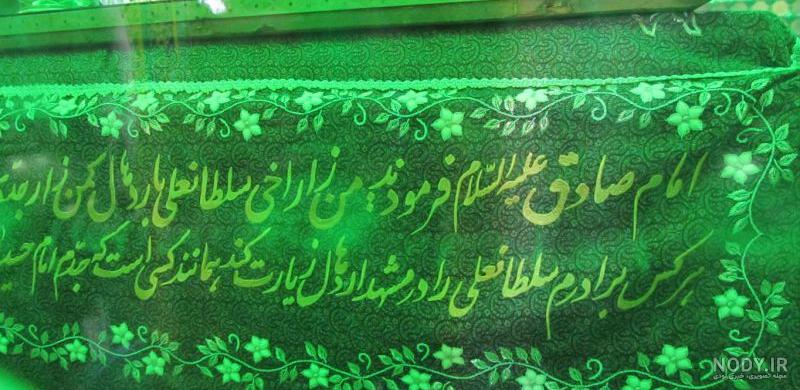 امام صادق علیه السلام فرمودند من زار اخی سلطانعلی باردهال کمن زار جدی
هر کس برادرم سلطانعلی را در مشهد اردهال زیارت کند همانند کسی است که جدم امام حسین
NODY.IR